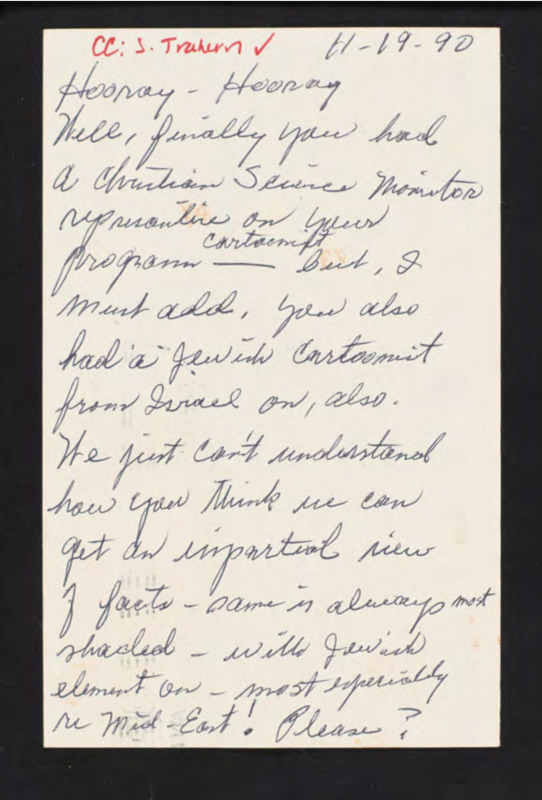 CC: S. Trahern ✓ 11-19-90
Hooray - Hooray
Well, finally you had
a Christian Science Monitor
represantive on your
cartoonist
program — but, I
must add, you also
had a Jewish Cartoonist
from Israel on, also.
We just can't understand
how you think we can
get an impartial view
of facts - same is always most
shaded - with Jewish
element on - most especially
re Mid-East! Please?